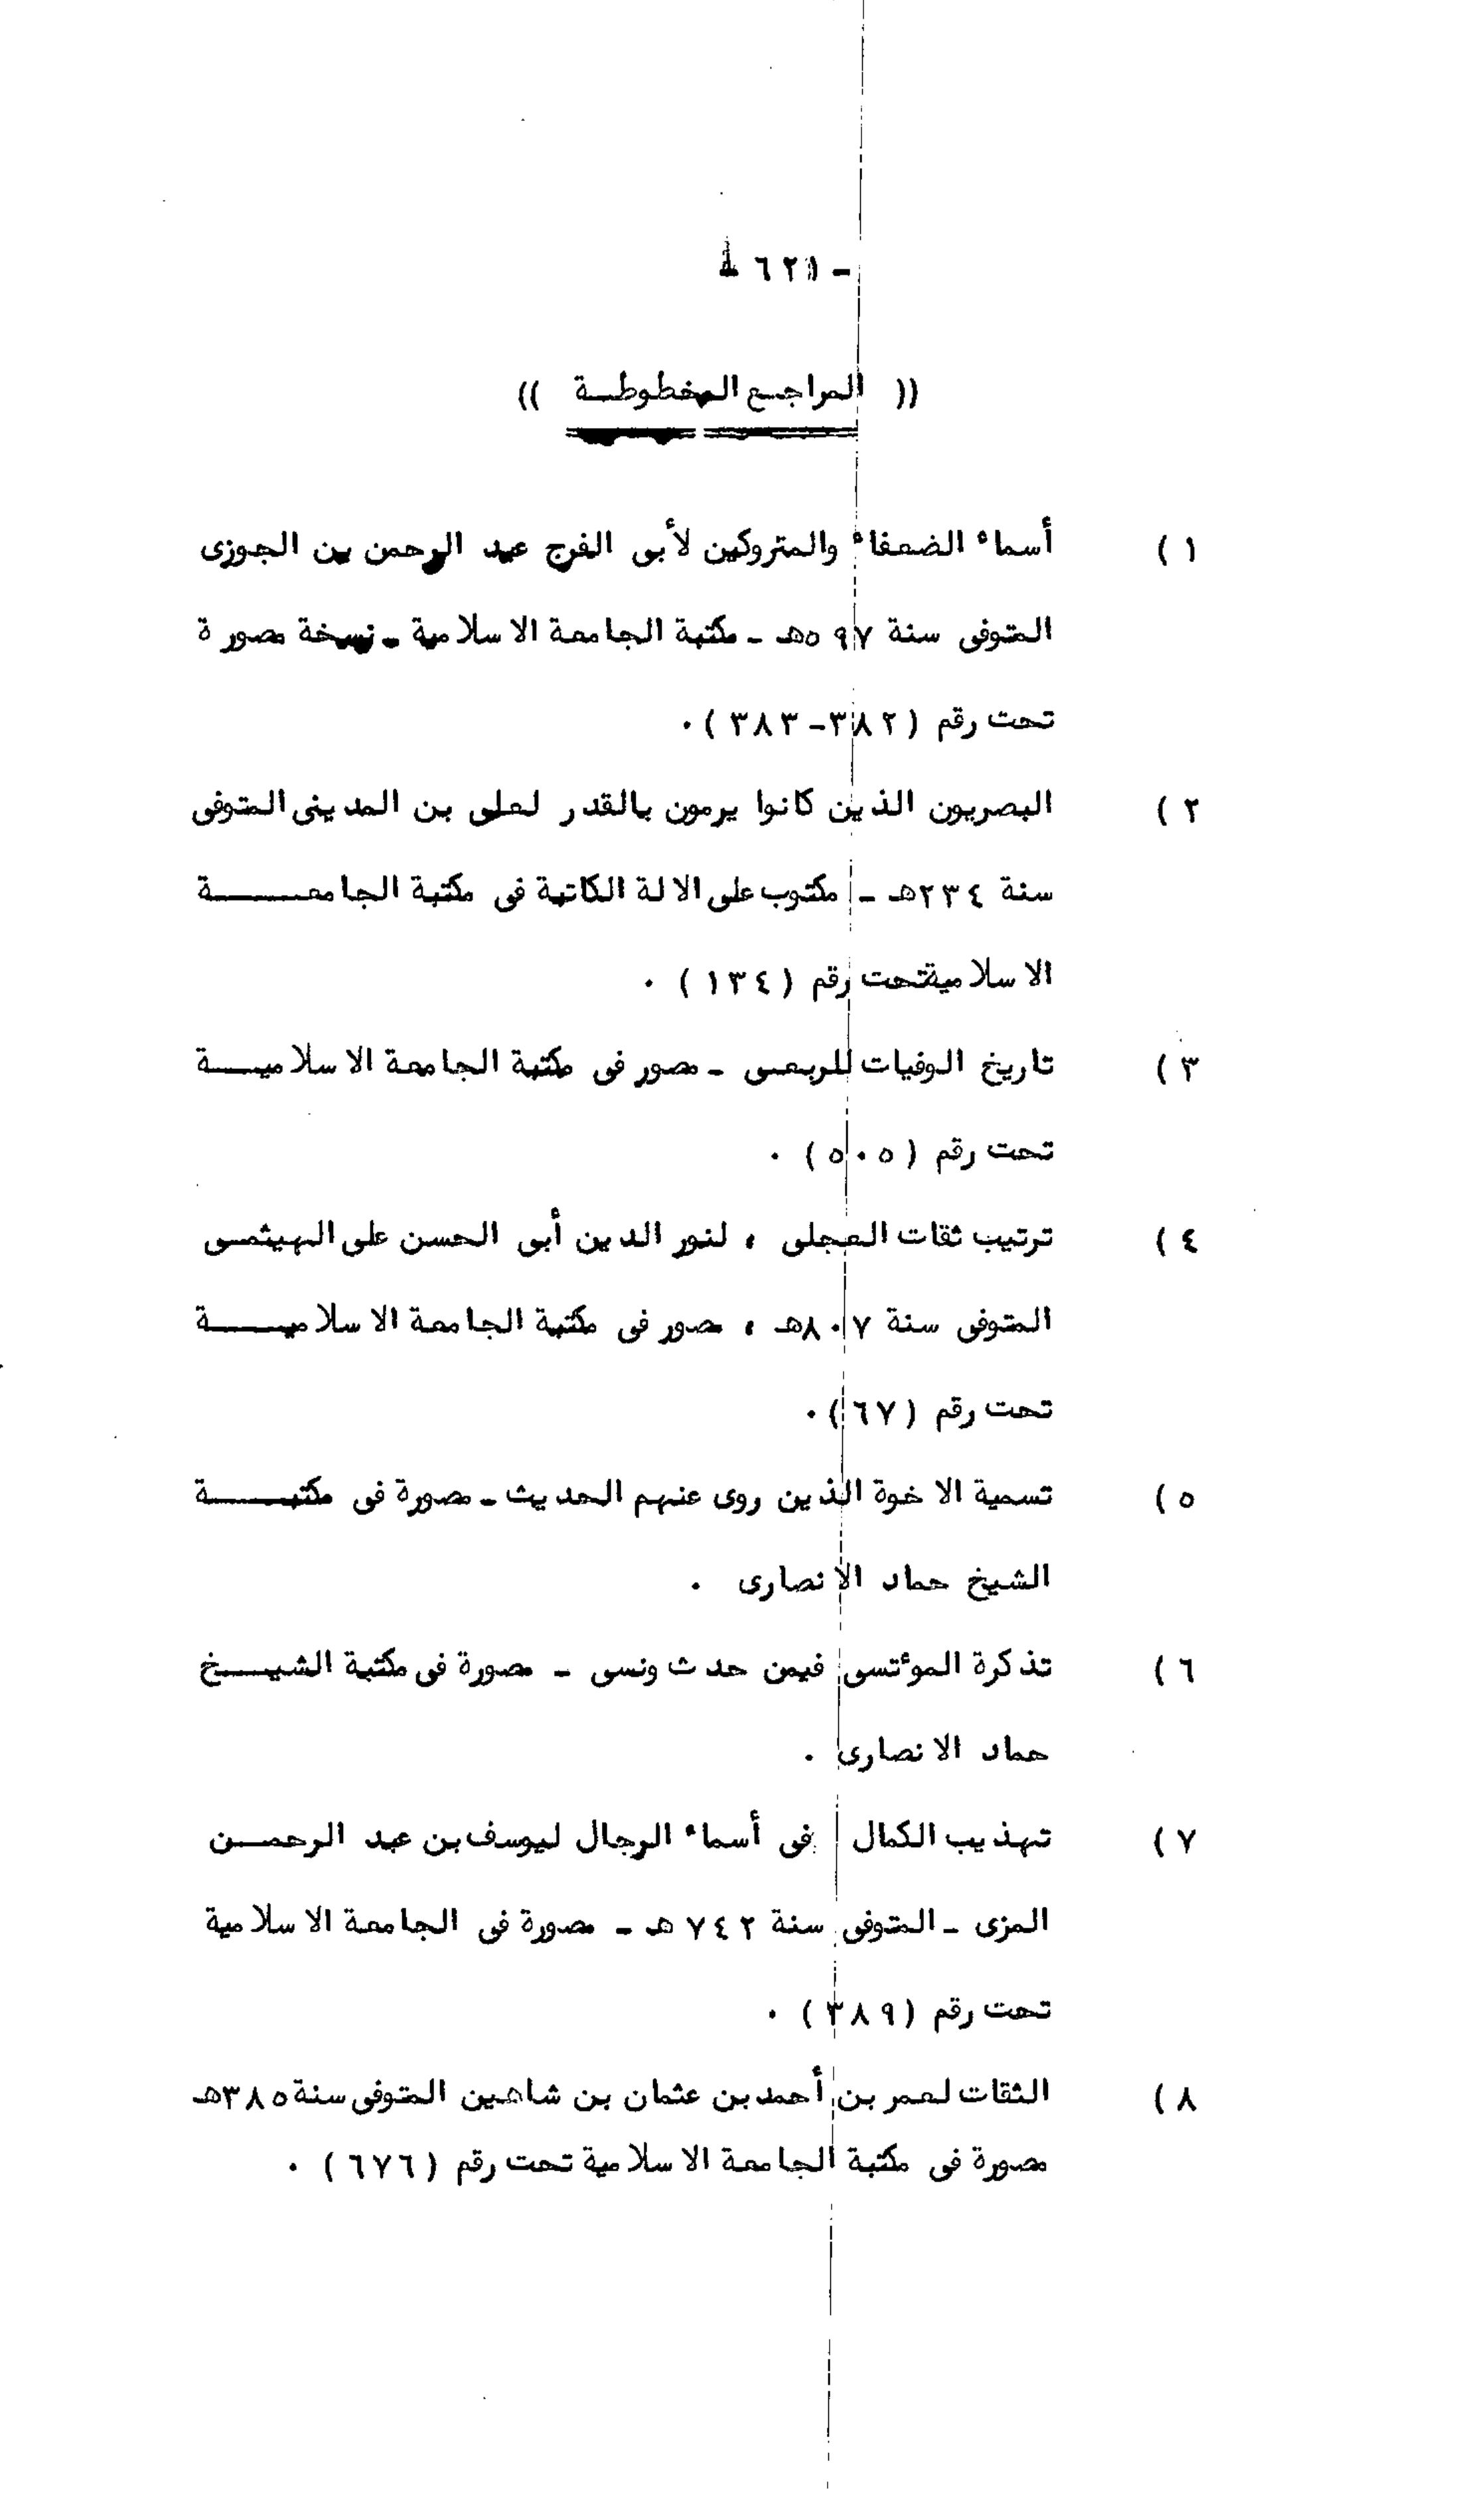 - ٦٢١ -
(( المراجع المخطوطة ))
١) أسماء الضعفاء والمتروكين لأبى الفرج عبد الرحمن بن الجوزى
المتوفى سنة ٥٩٧هـ - مكتبة الجامعة الاسلامية - نسخة مصورة
تحت رقم (٣٨٢-٣٨٣).
٢) البصريون الذين كانوا يرمون بالقدر لعلى بن المدينى المتوفى
سنة ٢٣٤هـ - مكتوب على الالة الكاتبة فى مكتبة الجامعة
الاسلامية تحت رقم (١٣٤) .
٣) تاريخ الوفيات للربعى - مصور فى مكتبة الجامعة الاسلامية
تحت رقم (٥٠٥) .
٤) ترتيب ثقات العجلى ، لنور الدين أبى الحسن على الهيثمى
المتوفى سنة ٨٠٧هـ ، مصور فى مكتبة الجامعة الاسلامية
تحت رقم (٦٧).
٥) تسمية الاخوة الذين روى عنهم الحديث - مصورة فى مكتبة
الشيخ حماد الانصارى .
٦) تذكرة الموٴتسى فيمن حدث ونسى - مصورة فى مكتبة الشيخ
حماد الانصارى .
٧) تهذيب الكمال فى أسماء الرجال ليوسف بن عبد الرحمن
المزى - المتوفى سنة ٧٤٢ هـ - مصورة فى الجامعة الاسلامية
تحت رقم (٣٨٩) .
٨) الثقات لعمر بن أحمد بن عثمان بن شاهين المتوفى سنة ٣٨٥هـ
مصورة فى مكتبة الجامعة الاسلامية تحت رقم (٦٧٦) .